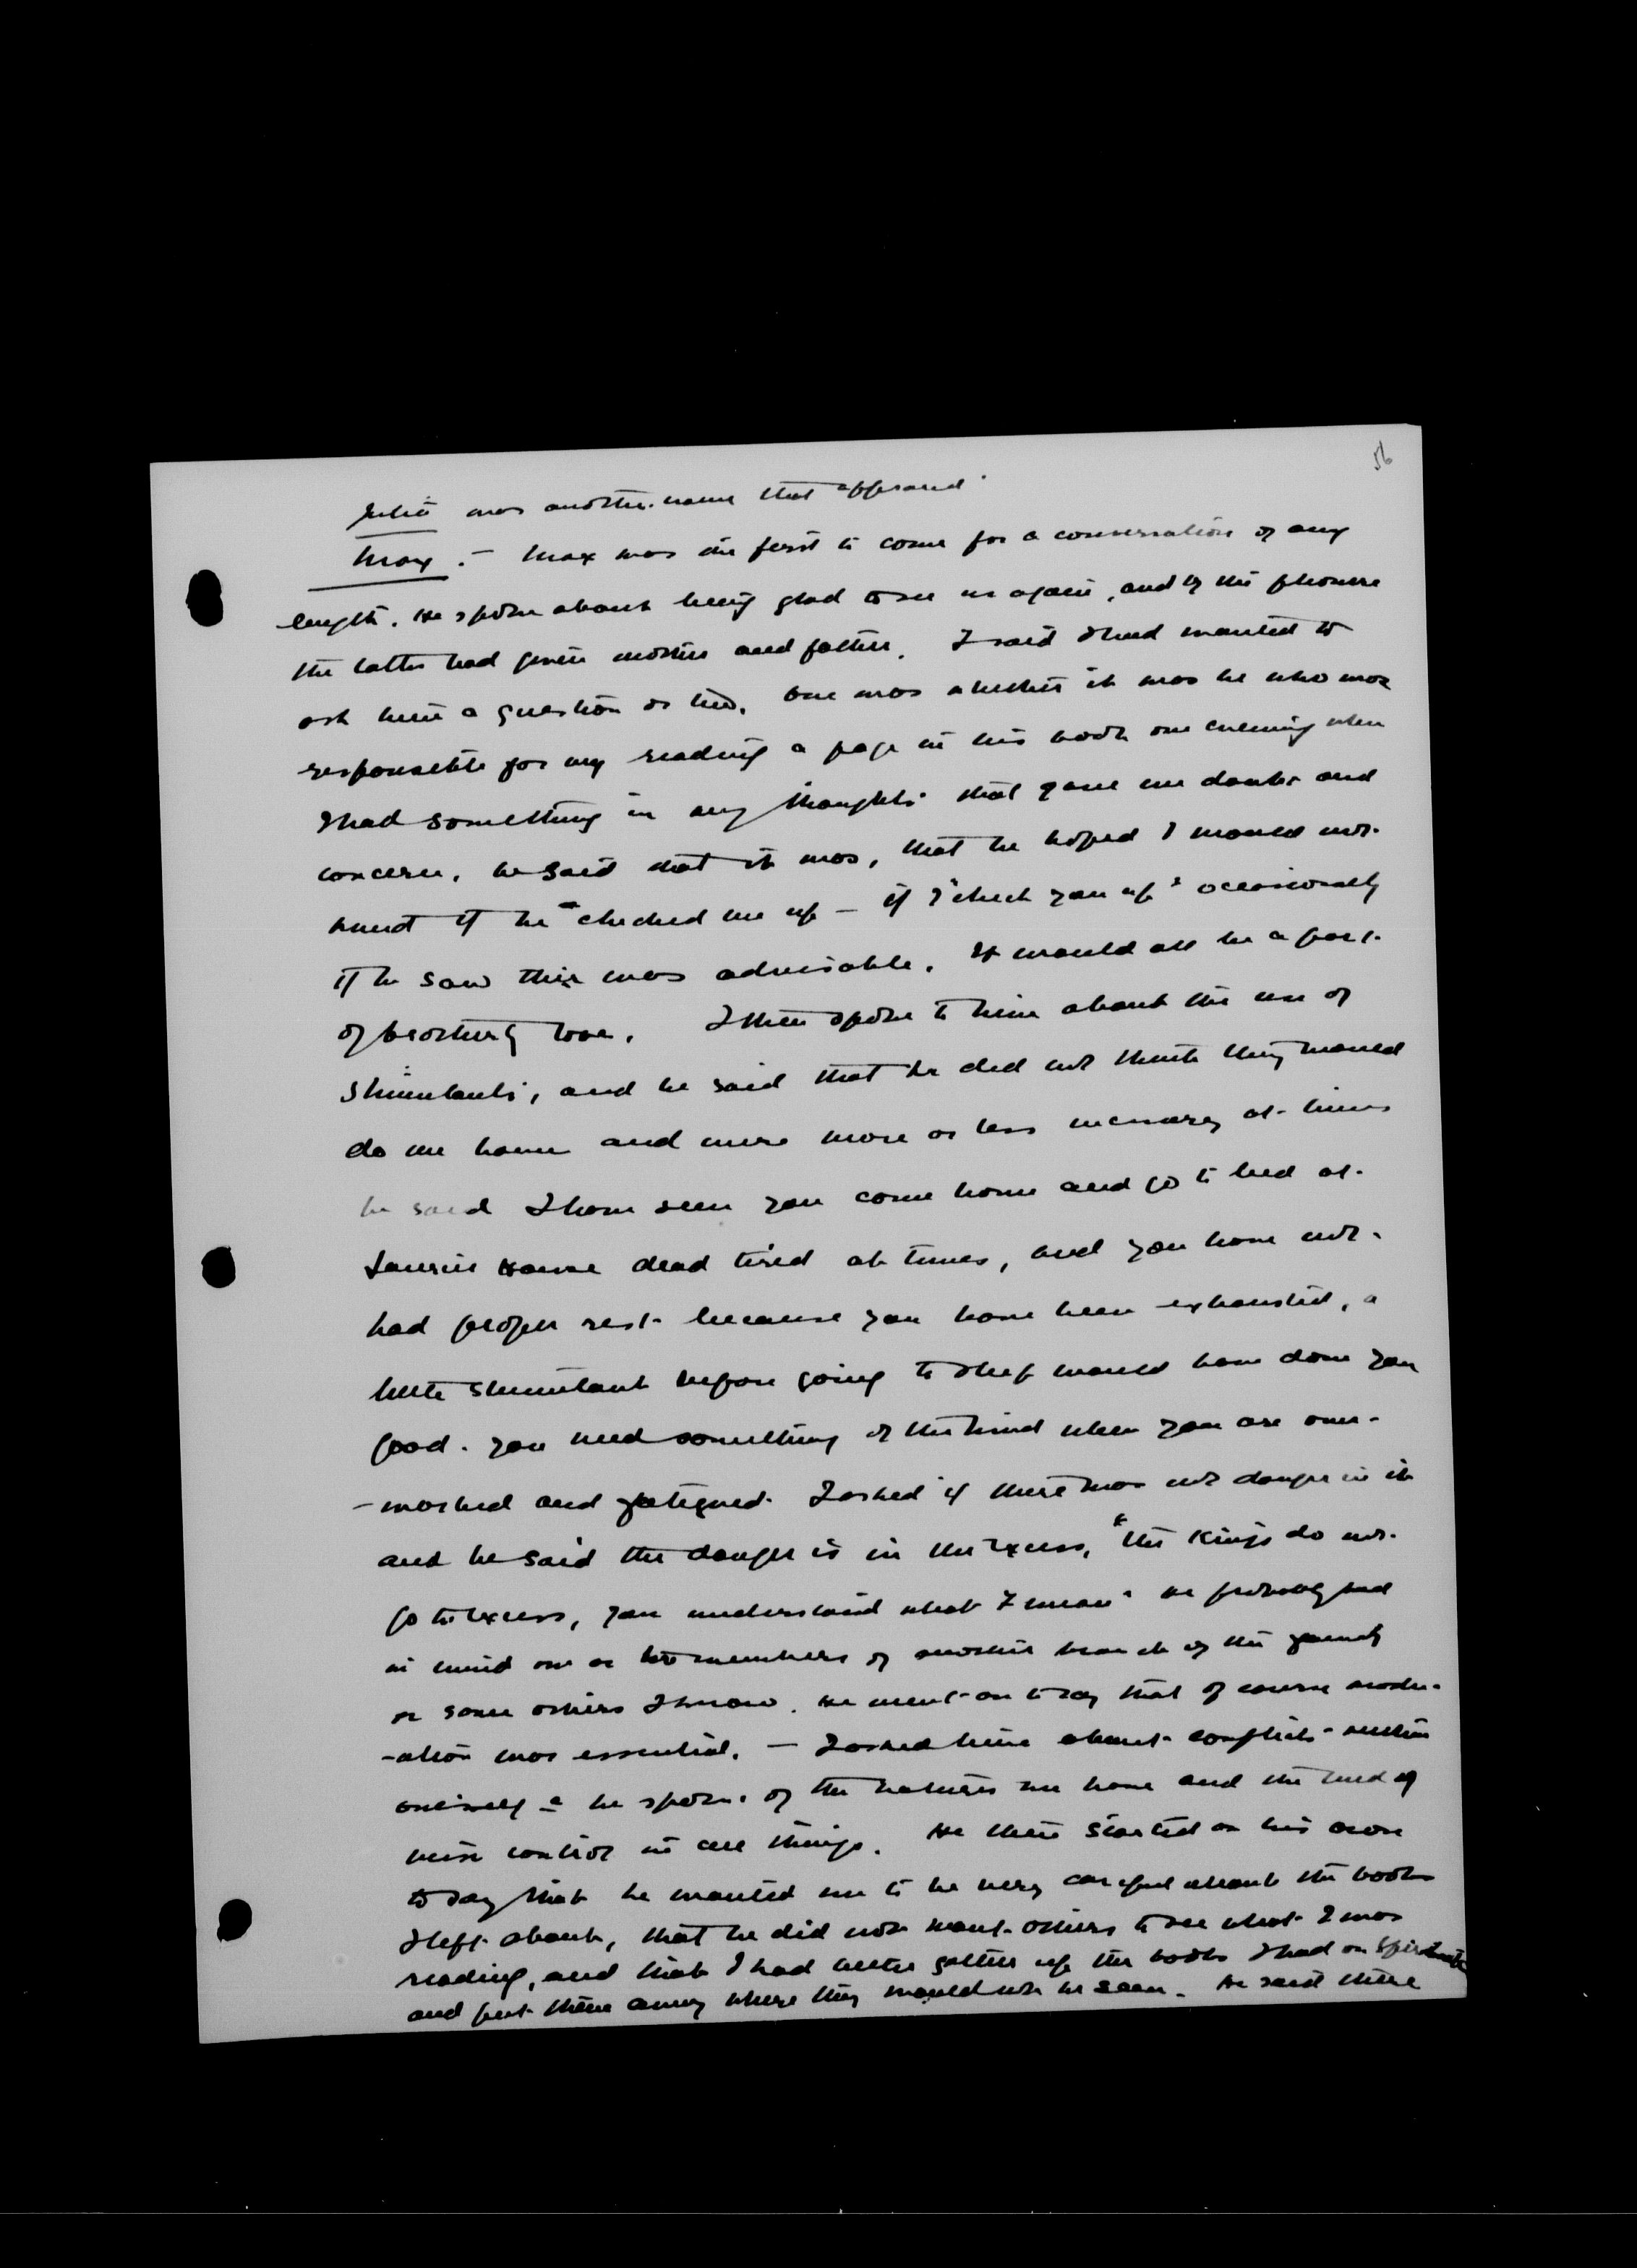 56
Juliet was another name that appeared.
Max. – Max was the first to come for a conversation of any
length. He spoke about being glad to see us again, and of the pleasure
the latter had given mother and father. I said I had wanted to
ask him a question or two. One was whether it was he who was
responsible for my reading a page in his book one evening when
I had something in my thoughts that gave me doubt and
concern, he said that it was, that he hoped I would not
mind if he checked me up – if I "check you up" occasionally
if he saw this was advisable. It would all be a part
of brotherly love. I then spoke to him about the use of
stimulants, and he said that he did not think they would
do me harm and were more or less necessary at times
he said I have seen you come home and go to bed at
Laurier House dead tired at times, and you have not
had proper rest because you have been exhausted, a
little stimulant before going to sleep would have done you
good. You need something of the kind when you are over-
-worked and fatigued. I asked if there was not danger in it
and he said the danger is in the excess, "the Kings do not
go to excess, you understand what I mean" He probably had
in mind one or two members of another branch of the family
or some others I know. He went on to say that of course moder-
-ation was essential. – I asked him about conflicts within
oneself – he spoke of the natures we have and the need of
wise control in all things. He then started on his own
to say that he wanted me to be very careful about the books
I left about, that he did not want others to see what I was
reading, and that I had better gather up the books I had on
and put them away where they would not be seen. He said there